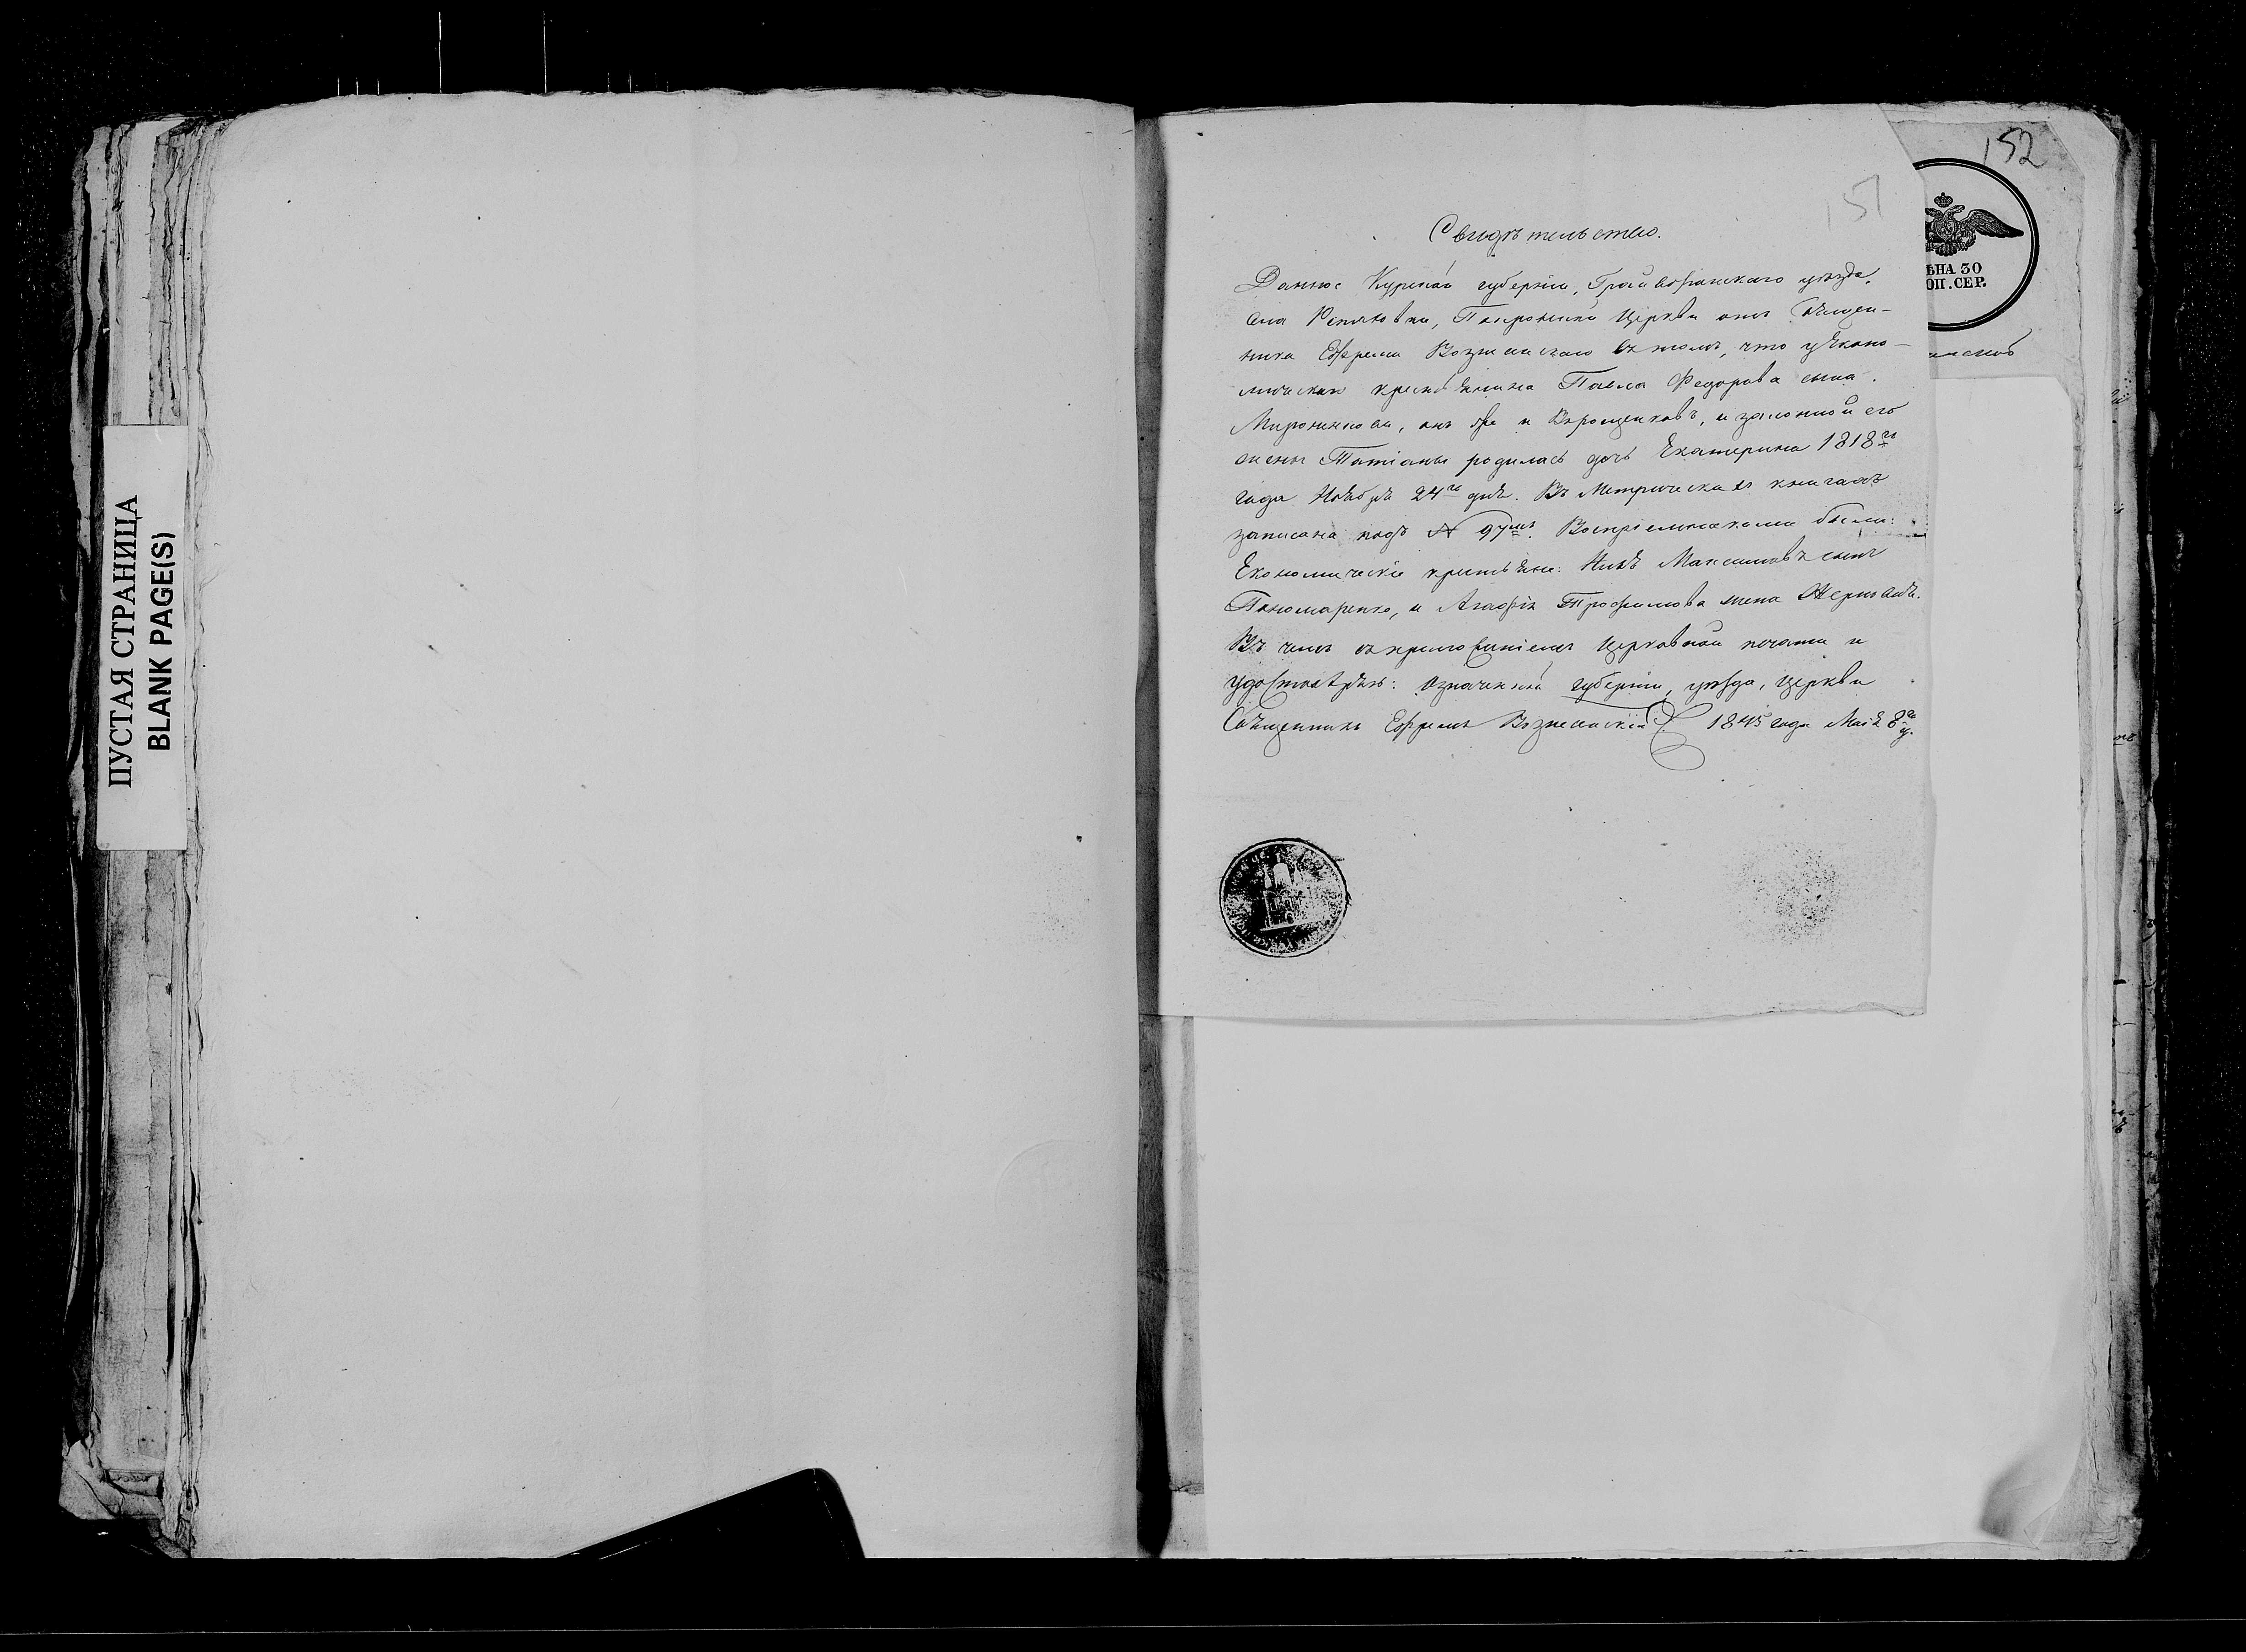 ПУСТАЯ СТРАНИЦА
BLANK PAGE(S)
152
151
ѢНА 30
ОП. СЕР.
Свидѣтельство.
Данное Курской губерніи, Грайворонскаго уѣзда,
села Покровской Церкви отъ Священ-
ника Ефрема Вознесенскаго въ томъ, что у Еконо-
мическаго крестьянина Павла Федорова сына
онъ же и и законной его
жены Татіаны родилась дочь Екатерина 1818го
года Ноября 24го дня. Въ Метрическихъ книгахъ
записана подъ № 97мъ. Воспріемниками были:
Економическіе крестьяне: Максимовъ сынъ
Пономаренко, и Агафія Трофимова жена
Въ чемъ съ приложеніемъ Церковной печати и
удостовѣряю: означенной губерніи, уѣзда, Церкви
Священникъ Ефремъ Вознесенскій 1845 года Маія 8го д.